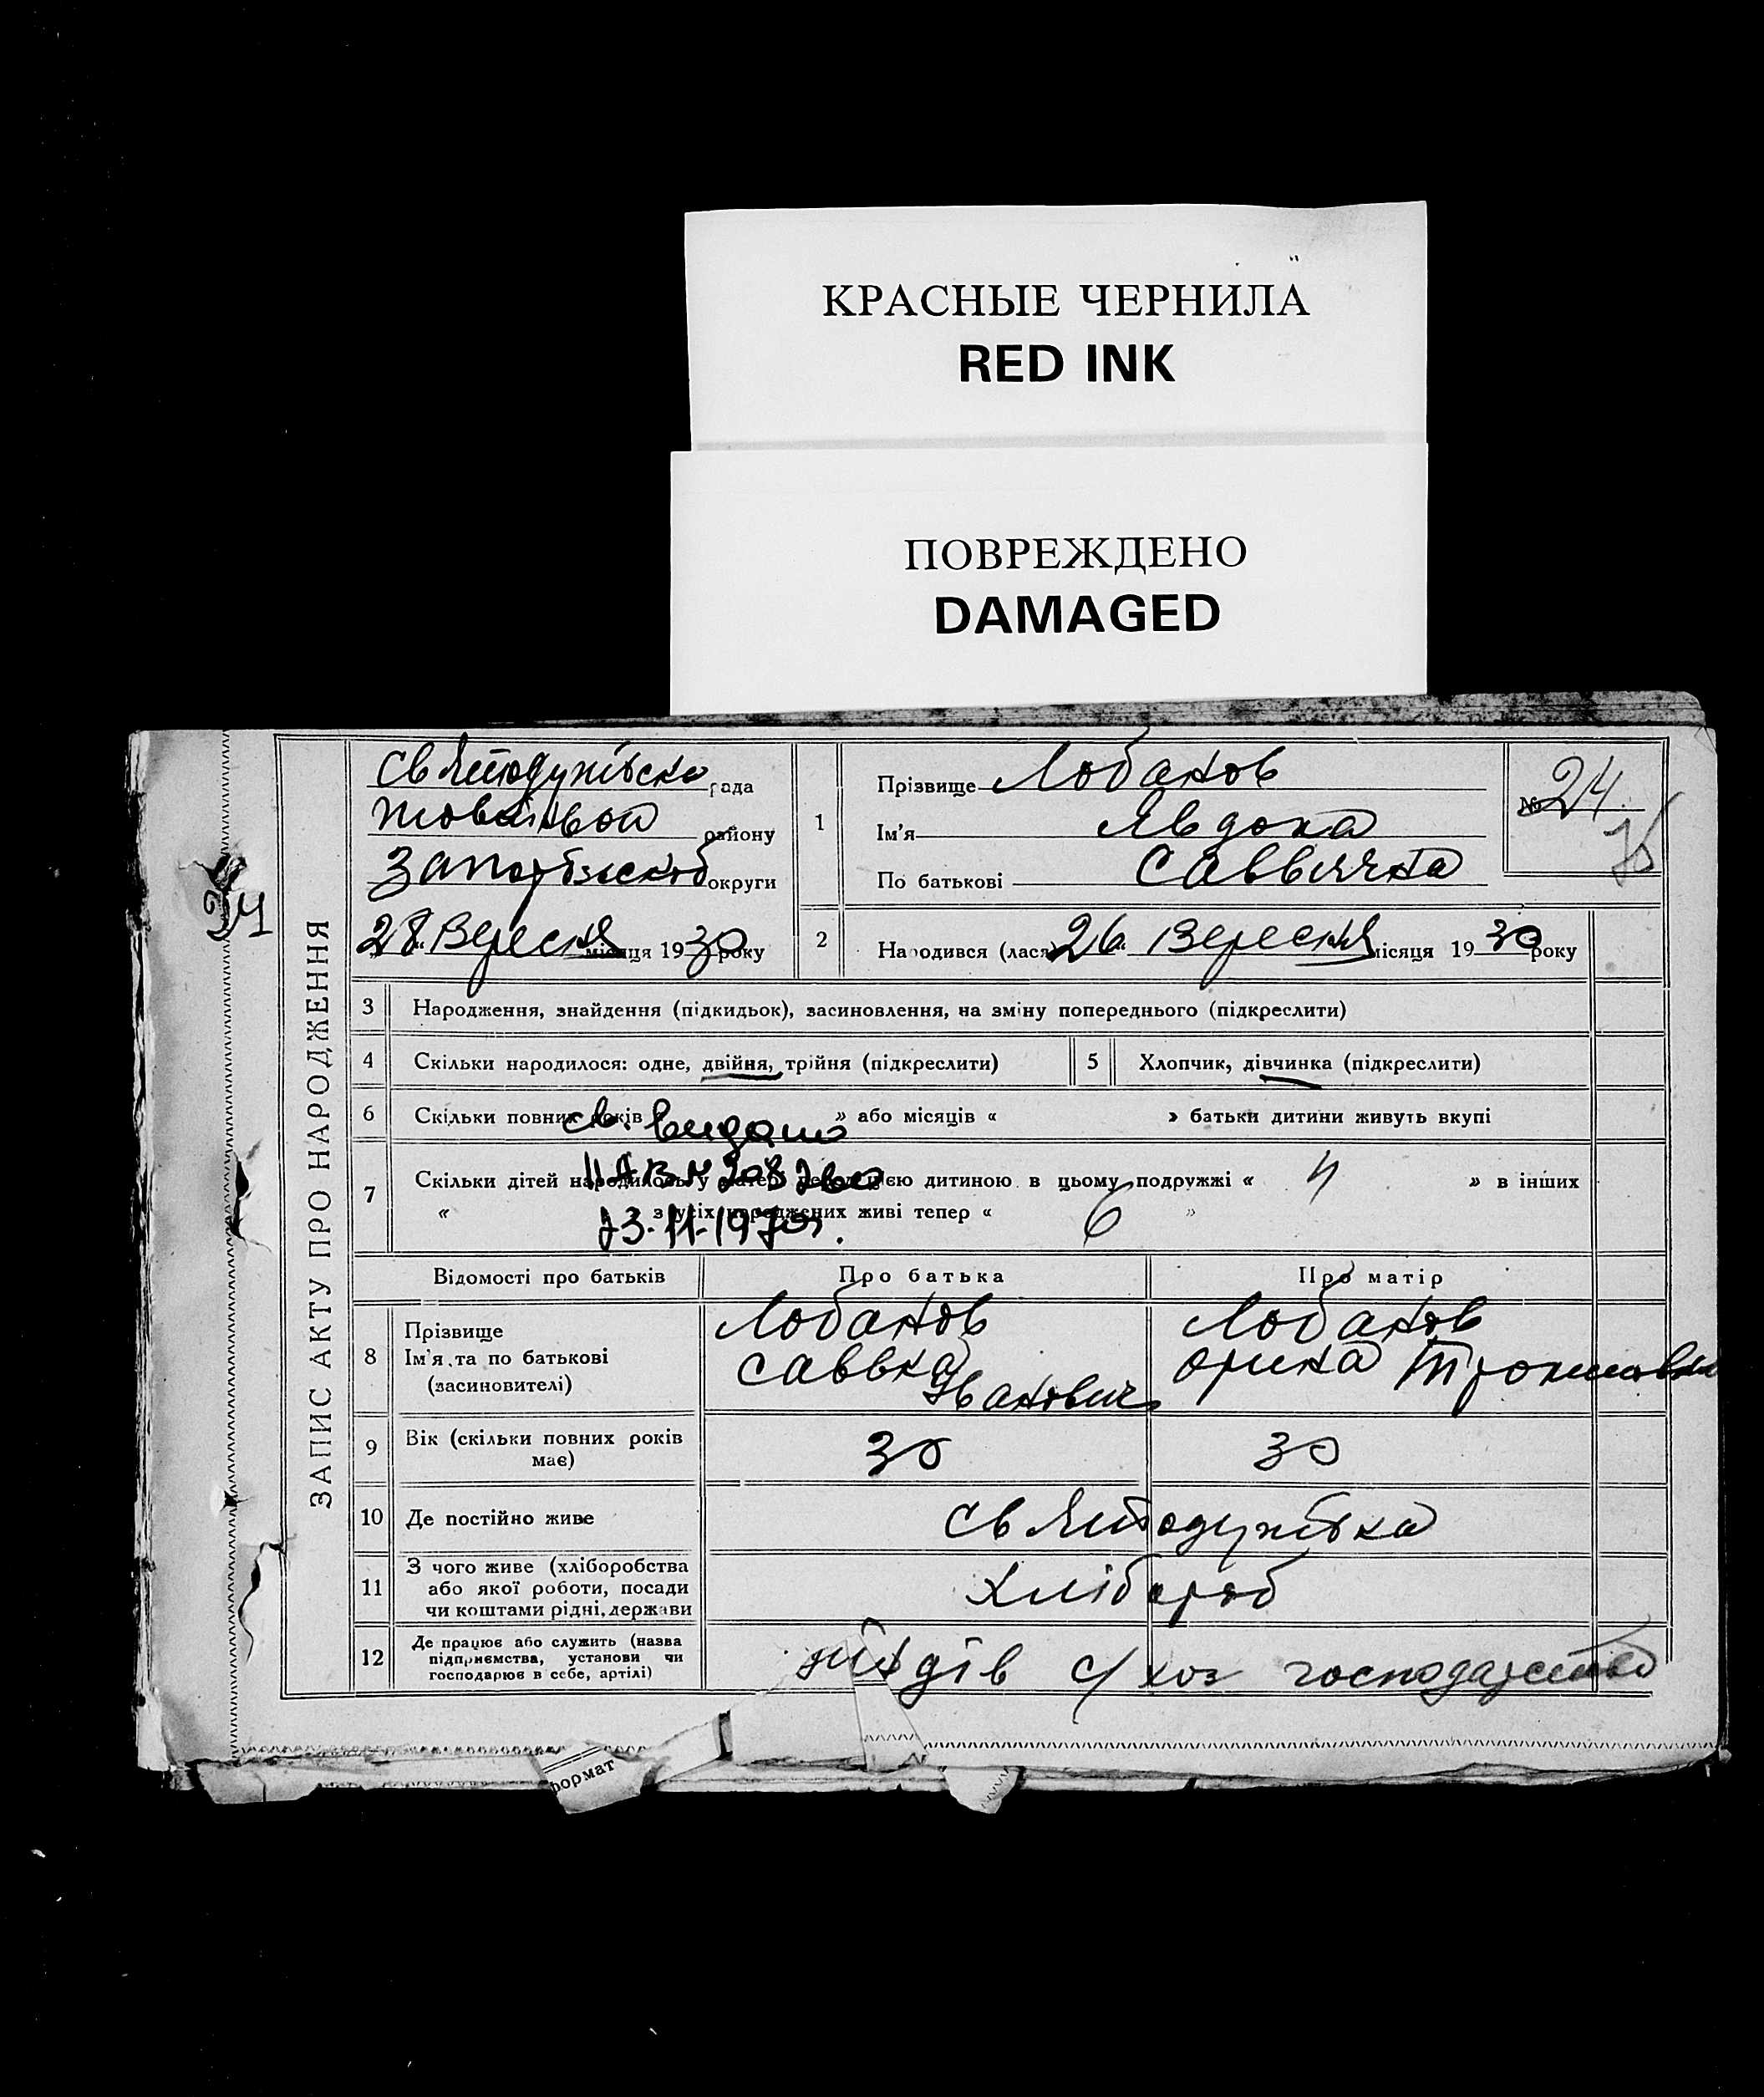 КРАСНЫЕ ЧЕРНИЛА
RED INK
ПОВРЕЖДЕНО
DAMAGED
ЗАПИС АКТУ ПРО НАРОДЖЕННЯ
24
Святодухівска рада
району
округи
28 Вересня місяця 1930 року
1
Прізвище Лобанов
Ім'я Явдоха
По батькові Саввична
№ 24
2
Народився (лася) 26 Вересня місяця 1930 року
3 Народження, знайдення (підкидьок), засиновлення, на зміну попереднього (підкреслити)
4 Скільки народилося: одне, двійня, трійня (підкреслити)
5 Хлопчик, дівчинка (підкреслити)
6 Скільки повних років » або місяців « » батьки дитини живуть вкупі
св. видано
7 Скільки дітей народилось у матері перед цією дитиною в цьому подружжі « » в інших
« з усіх народжених живі тепер « 6 »
Відомості про батьків Про батька Про матір
8 Прізвище
Ім'я та по батькові
(засиновителі)
Лобанов
Савва
Іванович
Лобанов
Орина
9 Вік (скільки повних років
має)
30 30
10 Де постійно живе
Святодухівка
11 З чого живе (хліборобства
або якої роботи, посади
чи коштами рідні, держави
Хлібороб
12 Де працює або служить (назва
підприємства, установи чи
господарює в себе, артілі)
с/хоз господарство
формат